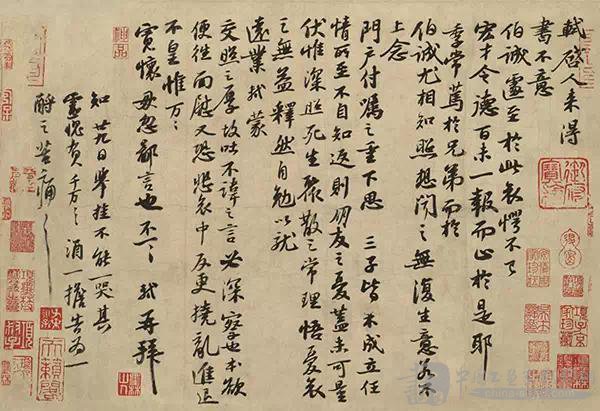 軾啓人来得
書不意
伯誠遽至於此哀愕不已
宏才令德百未一報而止於是耶
季常篤於兄弟而於
伯誠尤相知照想聞之無復生意若不
上念
門户付囑之重下思三子皆未成立任
情所至不自知返則朋友之憂蓋未可量
伏惟深照死生聚散之常理悟憂哀
之無益釋然自勉以就
遠業軾蒙
交照之厚故吐不諱之言必深察也本欲
便往面慰又恐悲哀中反更撓亂進退
不皇惟万〻
寬懷毋忽鄙言也不一〻軾再拜
知廿九日舉挂不能一哭其
靈愧負千万〻〻酒一擔告為一
酹之苦痛〻〻
天籟閣